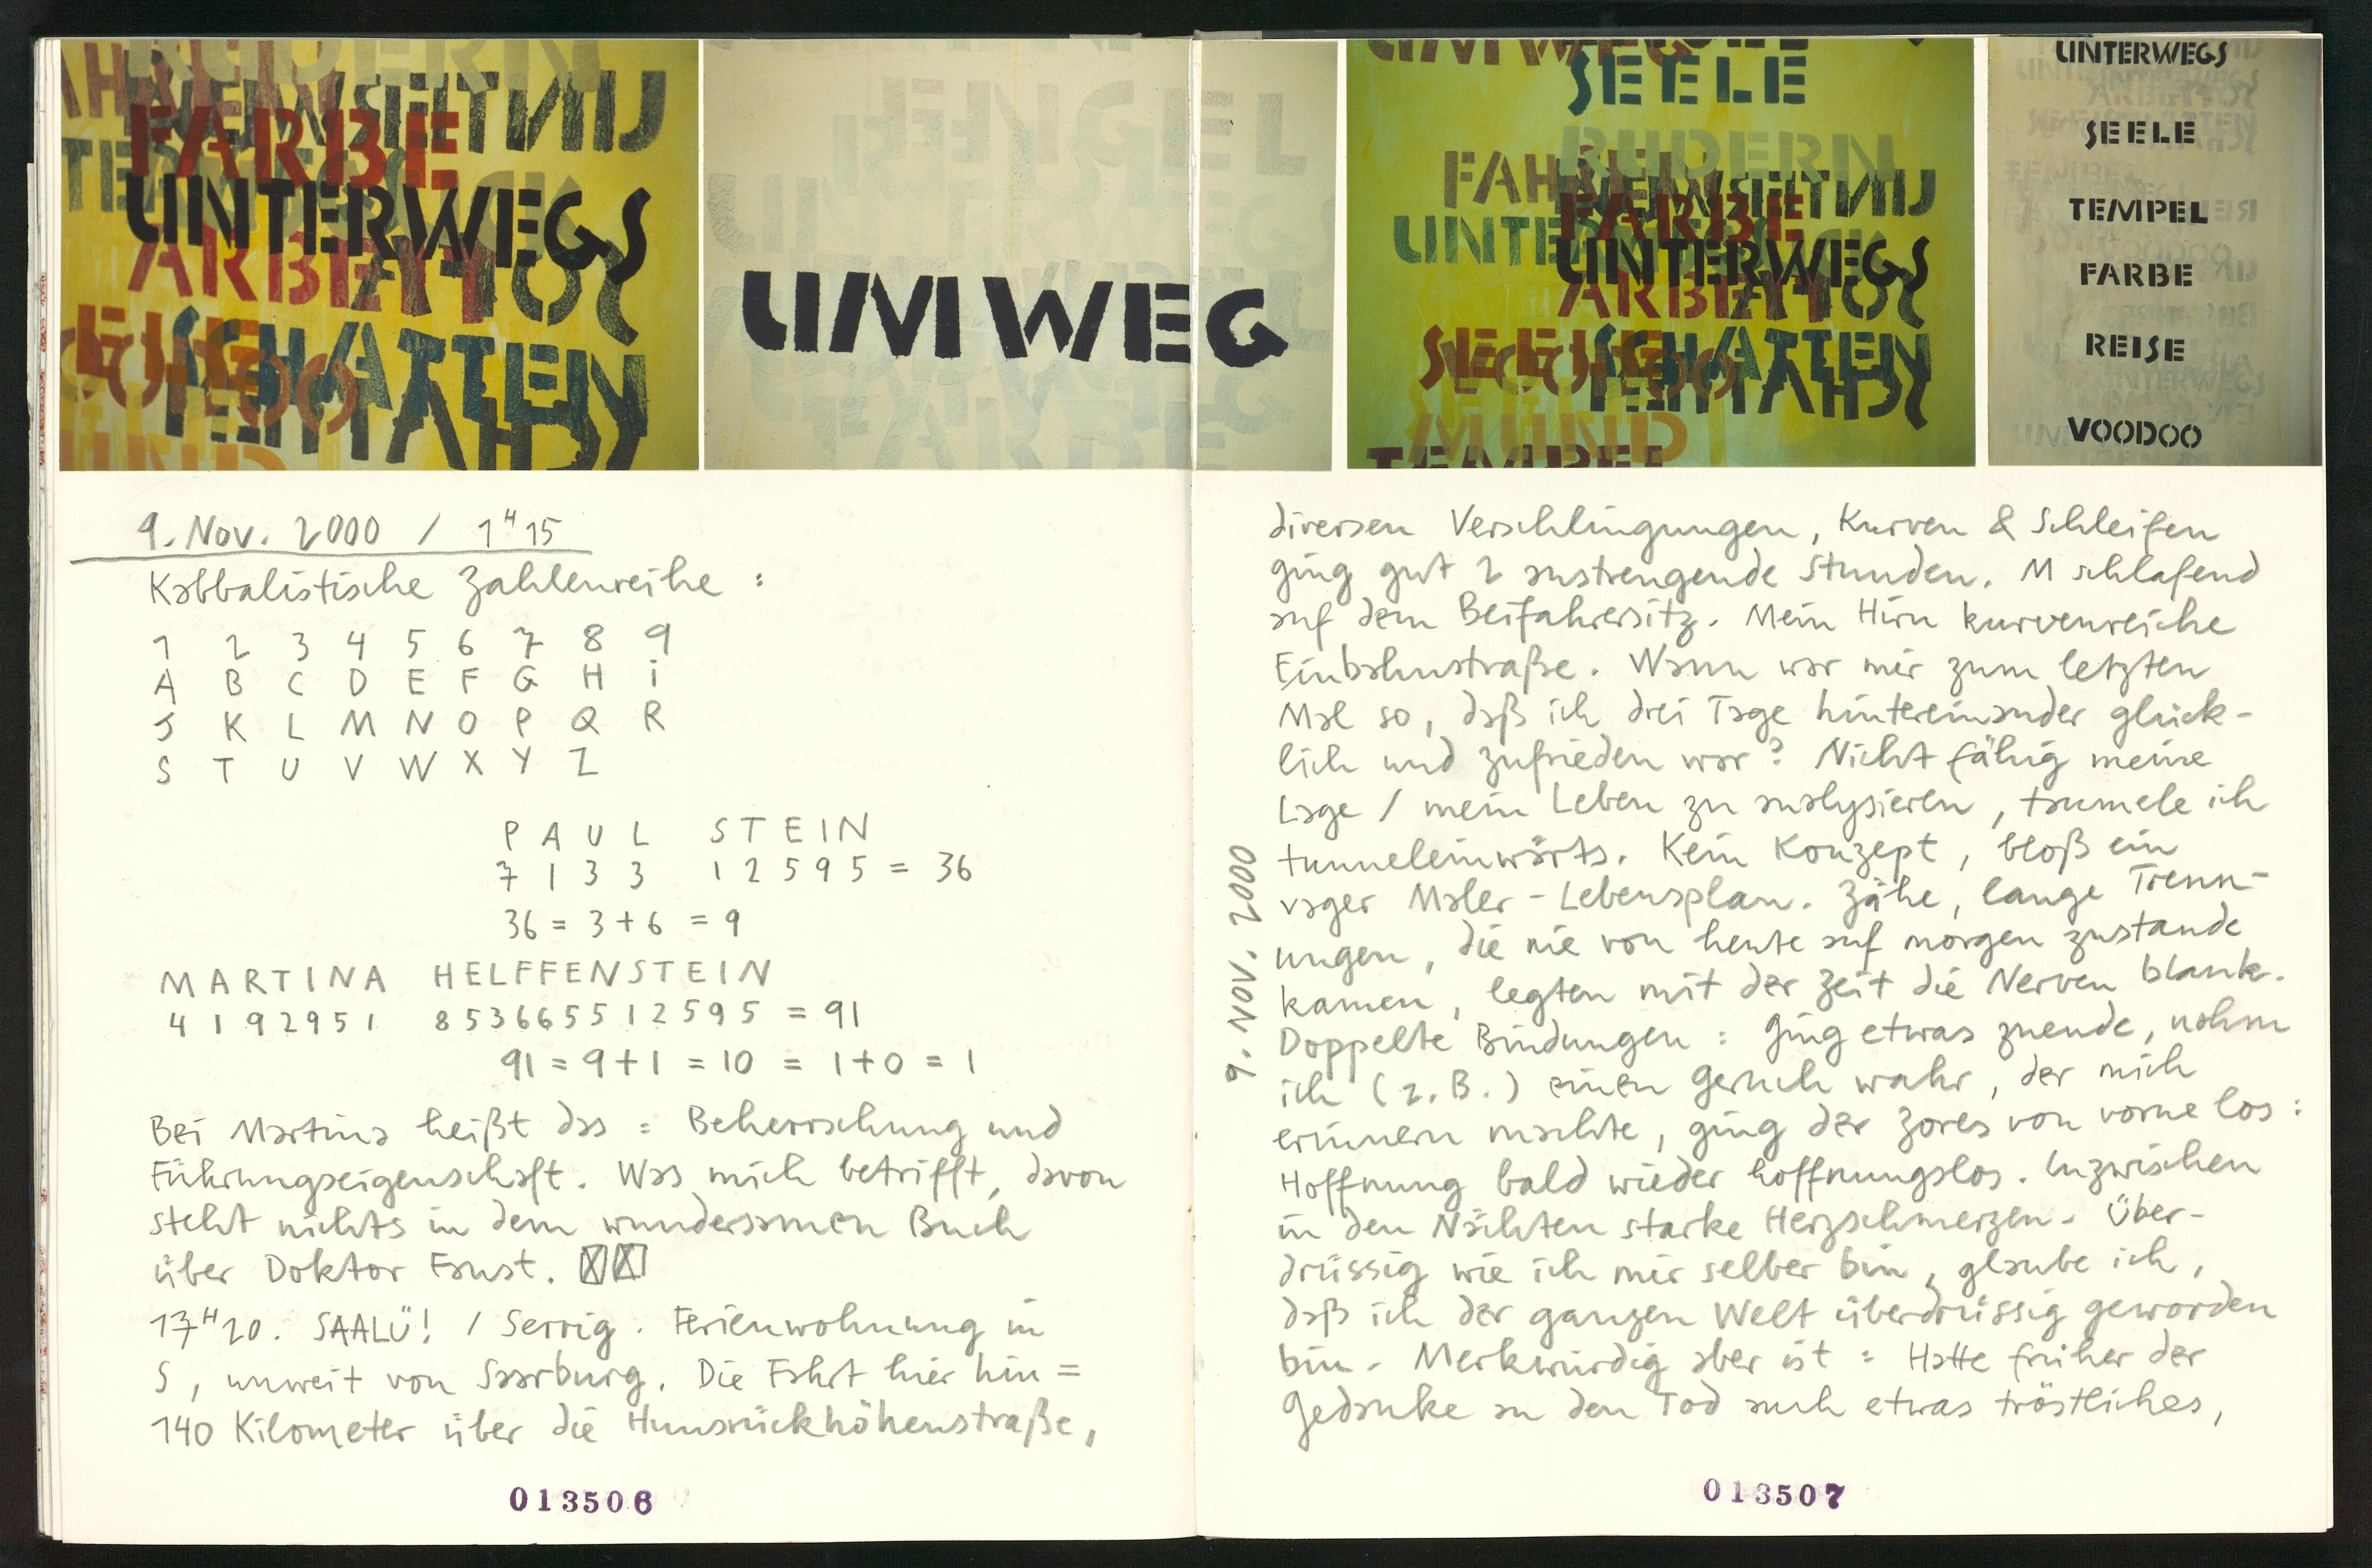 RUDERN
FARBE
UNTERWEGS
ARBEIT
SCHATTEN
UMWEG
UMWEG
SEELE
RUDERN
FARBE
UNTERWEGS
ARBEIT
SEELE
SCHATTEN
VOODOO
MUND
TEMPEL
UNTERWEGS
SEELE
TEMPEL
FARBE
REISE
VOODOO
9. Nov. 2000 / 1H15
Kabbalistische Zahlenreihe :
1 2 3 4 5 6 7 8 9
A B C D E F G H i
J K L M N O P Q R
S T U V W X Y Z
PAUL STEIN
7 1 3 3 1 2 5 9 5 = 36
36 = 3 + 6 = 9
MARTINA HELFFENSTEIN
4 1 9 2 9 5 1 8 5 3 6 6 5 5 1 2 5 9 5 = 91
91 = 9 + 1 = 10 = 1 + 0 = 1
Bei Martina heißt das = Beherrschung und
Führungseigenschaft. Was mich betrifft, davon
steht nichts in dem wundersamen Buch
über Doktor Faust.
17H20. SAALÜ! / Serrig. Ferienwohnung in
S, unweit von Saarburg. Die Fahrt hier hin =
140 Kilometer über die Hunsrückhöhenstraße,
013506
diversen Verschlingungen, Kurven & Schleifen
ging gut 2 anstrengende Stunden. M schlafend
auf dem Beifahrersitz. Mein Hirn kurvenreiche
Einbahnstraße. Wann war mir zum letzten
Mal so, daß ich drei Tage hintereinander glück-
lich und zufrieden war? Nicht fähig meine
Lage / mein Leben zu analysieren, taumele ich
tunneleinwärts. Kein Konzept, bloß ein
vager Maler-Lebensplan. Zähe, lange Trenn-
ungen, die nie von heute auf morgen zustande
kamen, legten mit der Zeit die Nerven blank.
Doppelte Bindungen : Ging etwas zuende, nahm
ich (z.B.) einen Geruch wahr, der mich
erinnern machte, ging der Zores von vorne los :
Hoffnung bald wieder hoffnungslos. Inzwischen
in den Nächten starke Herzschmerzen. Über-
drüssig wie ich mir selber bin, glaube ich,
daß ich der ganzen Welt überdrüssig geworden
bin. Merkwürdig aber ist : Hatte früher der
Gedanke an den Tod auch etwas tröstliches,
9. NOV. 2000
013507